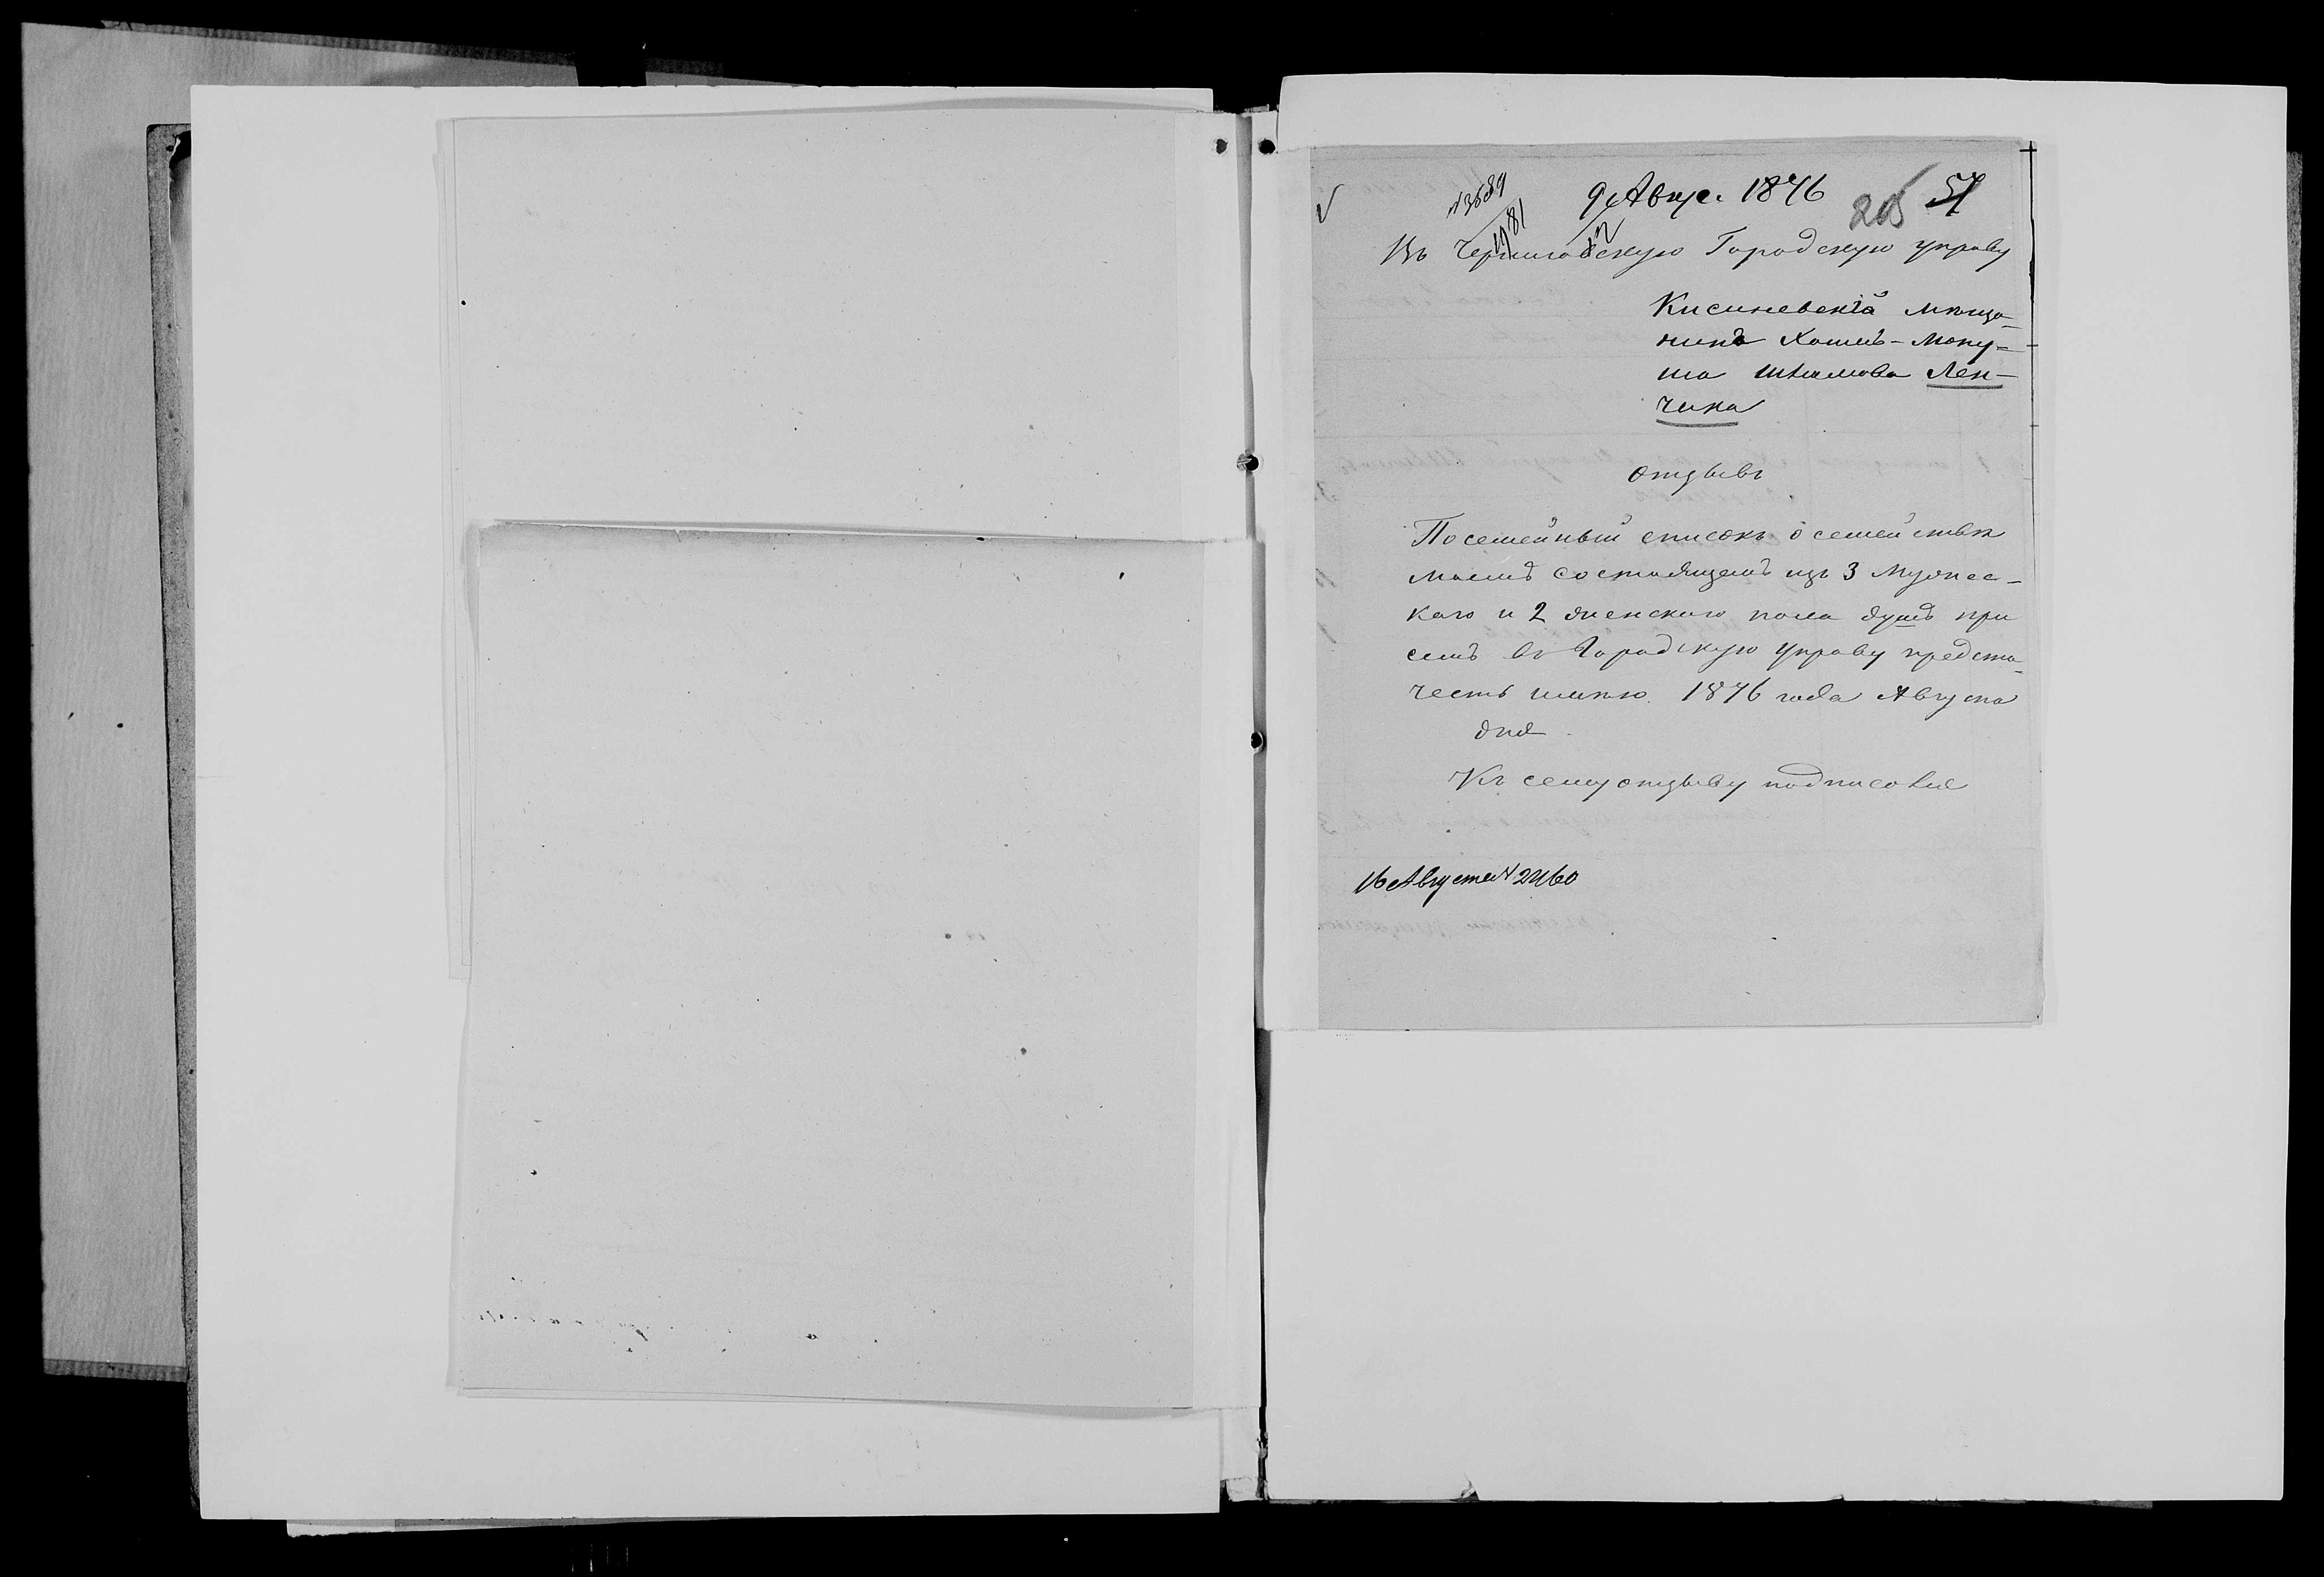 № 3689
1181
9 Авгус. 1876
205 57
Въ Черниговскую Городскую управу
Кисиневскій мѣща-
нинъ Хаимъ-Мону-
ша Шлиомова Лен-
чика
отзывъ
Посемейный списокъ о семействѣ
моемъ состоящемъ изъ 3 Мужес-
каго и 2 женскаго пола душъ при
семъ въ Городскую управу предста-
честь имѣю. 1876 года Августа
дня
Къ сему отзыву подписовся
16 Августа № 2460